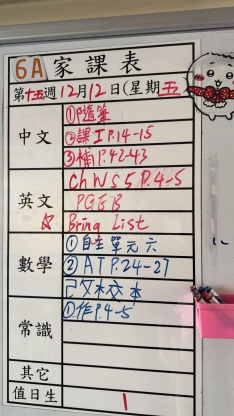 6A 家課表
第十五週 12月12日(星期五)
中文 ①隨筆
②課工P.14-15
③補P.42-43
英文 Ch WS 5 P.4-5
PGEB
Bring List
數學 ①自主單元六
②AT P.24-27
常識 ①作P.4-5
其它
值日生 1